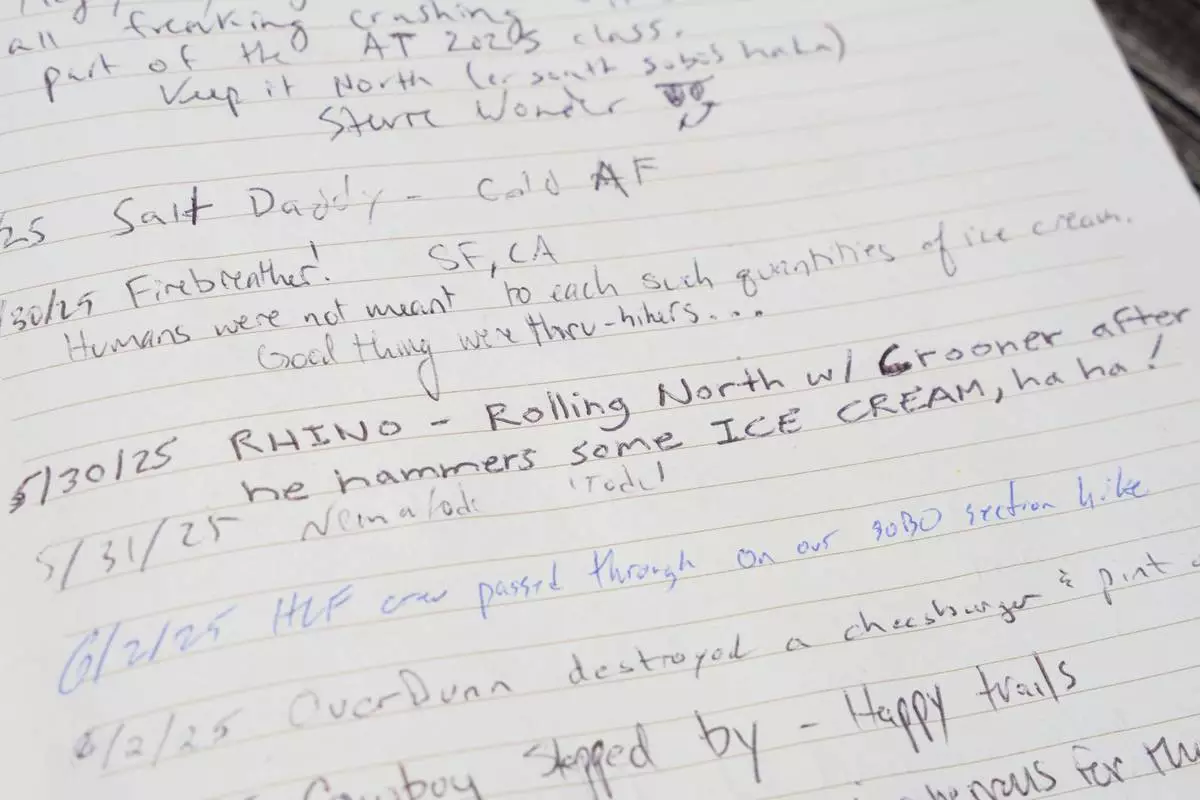 all freaking crashing
part of the AT 2025 class.
Keep it North (or south sobos haha)
Wonder
25 Salt Daddy - Cold AF
/30/25 Firebreather! SF, CA
Humans were not meant to each such quantities of ice cream.
Good thing we're thru-hikers...
5/30/25 RHINO - Rolling North w/ Crooner after
he hammers some ICE CREAM, ha ha!
5/31/25
6/2/25 HLF crew passed through on our SOBO section hike
6/2/25 OverDunn destroyed a cheesburger & pint
Cowboy stopped by - Happy trails
for